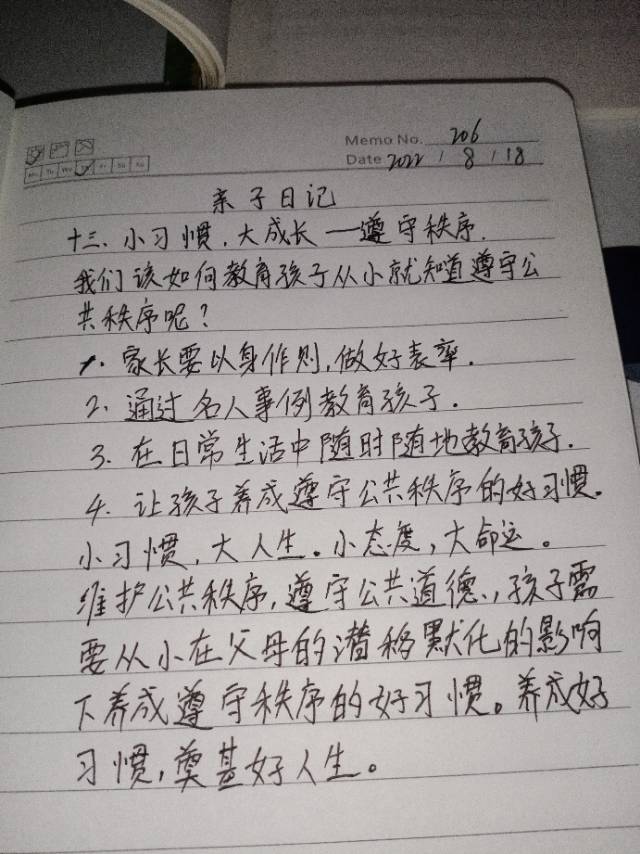 Memo No. 206
Date 2022 / 8 / 18
亲子日记
十三、小习惯,大成长——遵守秩序.
我们该如何教育孩子从小就知道遵守公
共秩序呢?
1. 家长要以身作则,做好表率.
2. 通过名人事例教育孩子.
3. 在日常生活中随时随地教育孩子.
4. 让孩子养成遵守公共秩序的好习惯.
小习惯,大人生。小态度,大命运。
维护公共秩序,遵守公共道德.,孩子需
要从小在父母的潜移默化的影响
下养成遵守秩序的好习惯。养成好
习惯,奠基好人生。